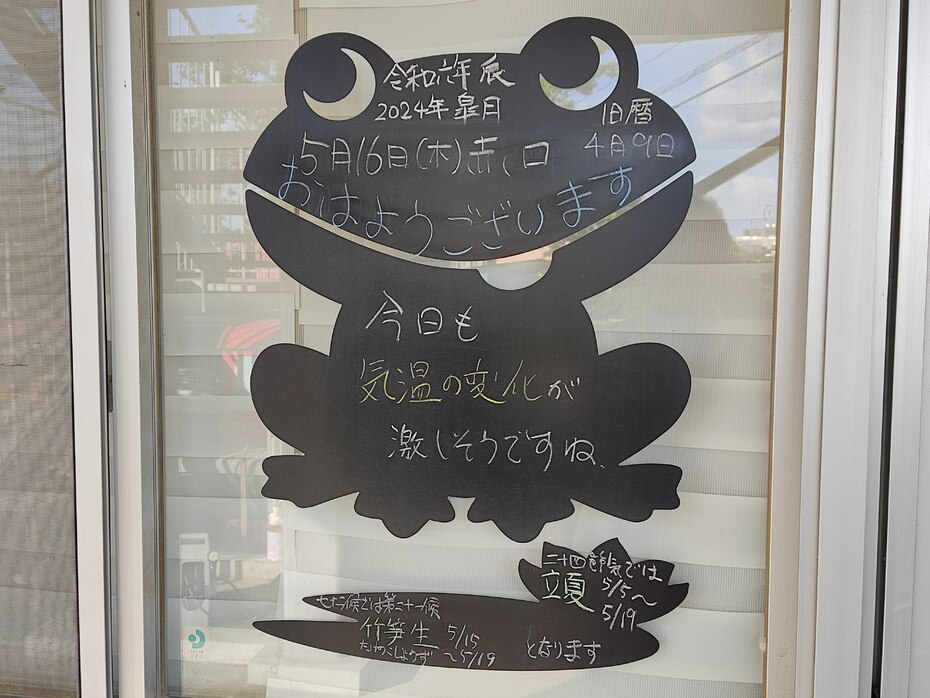 令和六年辰
2024年皐月
旧暦
4月9日
5月16日(木)赤口
おはようございます
今日も
気温の変化が
激しそうですね、
二十四節気では
立夏
5/5〜
5/19
七十二候では第二十一候
竹笋生
たけのこしょうず
5/15
〜5/19
となります